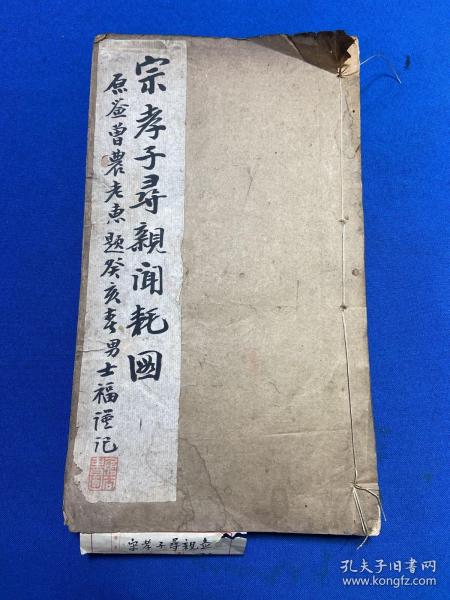 宗孝子尋親聞耗圖
原签曾農老惠題癸亥春男士福谨记
宗孝子尋親
孔夫子旧书网
www.kongfz.com